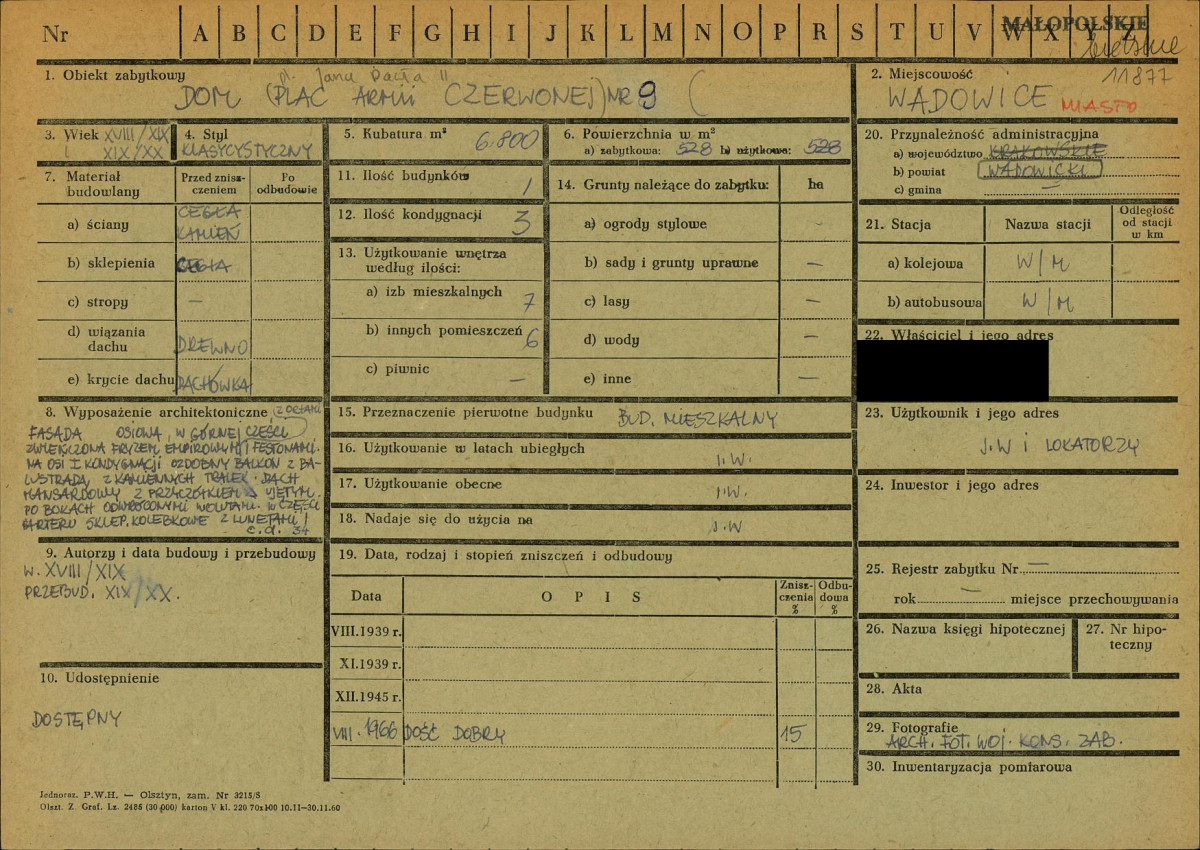 Nr A B C D E F G H I J K L M N O P R S T U V W X Y Z
MAŁOPOLSKIE
bielskie
11877
1. Obiekt zabytkowy
pl. Jana Pawła II
DOM (PLAC ARMII CZERWONEJ) NR 9
2. Miejscowość
WADOWICE MIASTO
3. Wiek XVIII/XIX
i XIX/XX
4. Styl
KLASYCYSTYCZNY
5. Kubatura m³ 6.800
6. Powierzchnia w m²
a) zabytkowa: 528 b) użytkowa: 528
7. Materiał budowlany
Przed zniszczeniem
Po odbudowie
a) ściany CEGŁA KAMIEŃ
b) sklepienia CEGŁA
c) stropy —
d) wiązania dachu DREWNO
e) krycie dachu DACHÓWKA
8. Wyposażenie architektoniczne
FASADA OSIOWA, W GÓRNEJ CZĘŚCI
ZWIEŃCZONA FRYZEM EMPIROWYM I FESTONAMI.
NA OSI I KONDYGNACJI OZDOBNY BALKON Z BA-
LUSTRADĄ Z KAMIENNYCH TRALEK. DACH
MANSARDOWY Z PRZYCZÓŁKIEM UJĘTYM
PO BOKACH ODWRÓCONYMI WOLUTAMI. W CZĘŚCI
PARTERU SKLEP. KOLEBKOWE Z LUNETAMI
c.d. 34
9. Autorzy i data budowy i przebudowy
W. XVIII/XIX
PRZEBUD. XIX/XX.
10. Udostępnienie
DOSTĘPNY
11. Ilość budynków 1
12. Ilość kondygnacji 3
13. Użytkowanie wnętrza
według ilości:
a) izb mieszkalnych 7
b) innych pomieszczeń 6
c) piwnic —
14. Grunty należące do zabytku: ha
a) ogrody stylowe -
b) sady i grunty uprawne —
c) lasy —
d) wody —
e) inne —
15. Przeznaczenie pierwotne budynku BUD. MIESZKALNY
16. Użytkowanie w latach ubiegłych J.W.
17. Użytkowanie obecne J.W.
18. Nadaje się do użycia na J.W
19. Data, rodzaj i stopień zniszczeń i odbudowy
Data O P I S Zniszczenia % Odbudowa %
VIII.1939 r.
XI.1939 r.
XII.1945 r.
VIII.1966 DOŚĆ DOBRY 15
20. Przynależność administracyjna
a) województwo KRAKOWSKIE
b) powiat WADOWICKI
c) gmina —
21. Stacja Nazwa stacji Odległość od stacji w km
a) kolejowa W/M
b) autobusowa W/M
22. Właściciel i jego adres
23. Użytkownik i jego adres
J.W I LOKATORZY
24. Inwestor i jego adres
25. Rejestr zabytku Nr —
rok — miejsce przechowywania
26. Nazwa księgi hipotecznej
27. Nr hipoteczny
28. Akta
29. Fotografie
ARCH. FOT. WOJ. KONS. ZAB.
30. Inwentaryzacja pomiarowa
Jednoraz. P.W.H. — Olsztyn, zam. Nr 3215/S
Olszt. Z. Graf. Lz. 2485 (30 000) karton V kl. 220 70x100 10.11—30.11.60